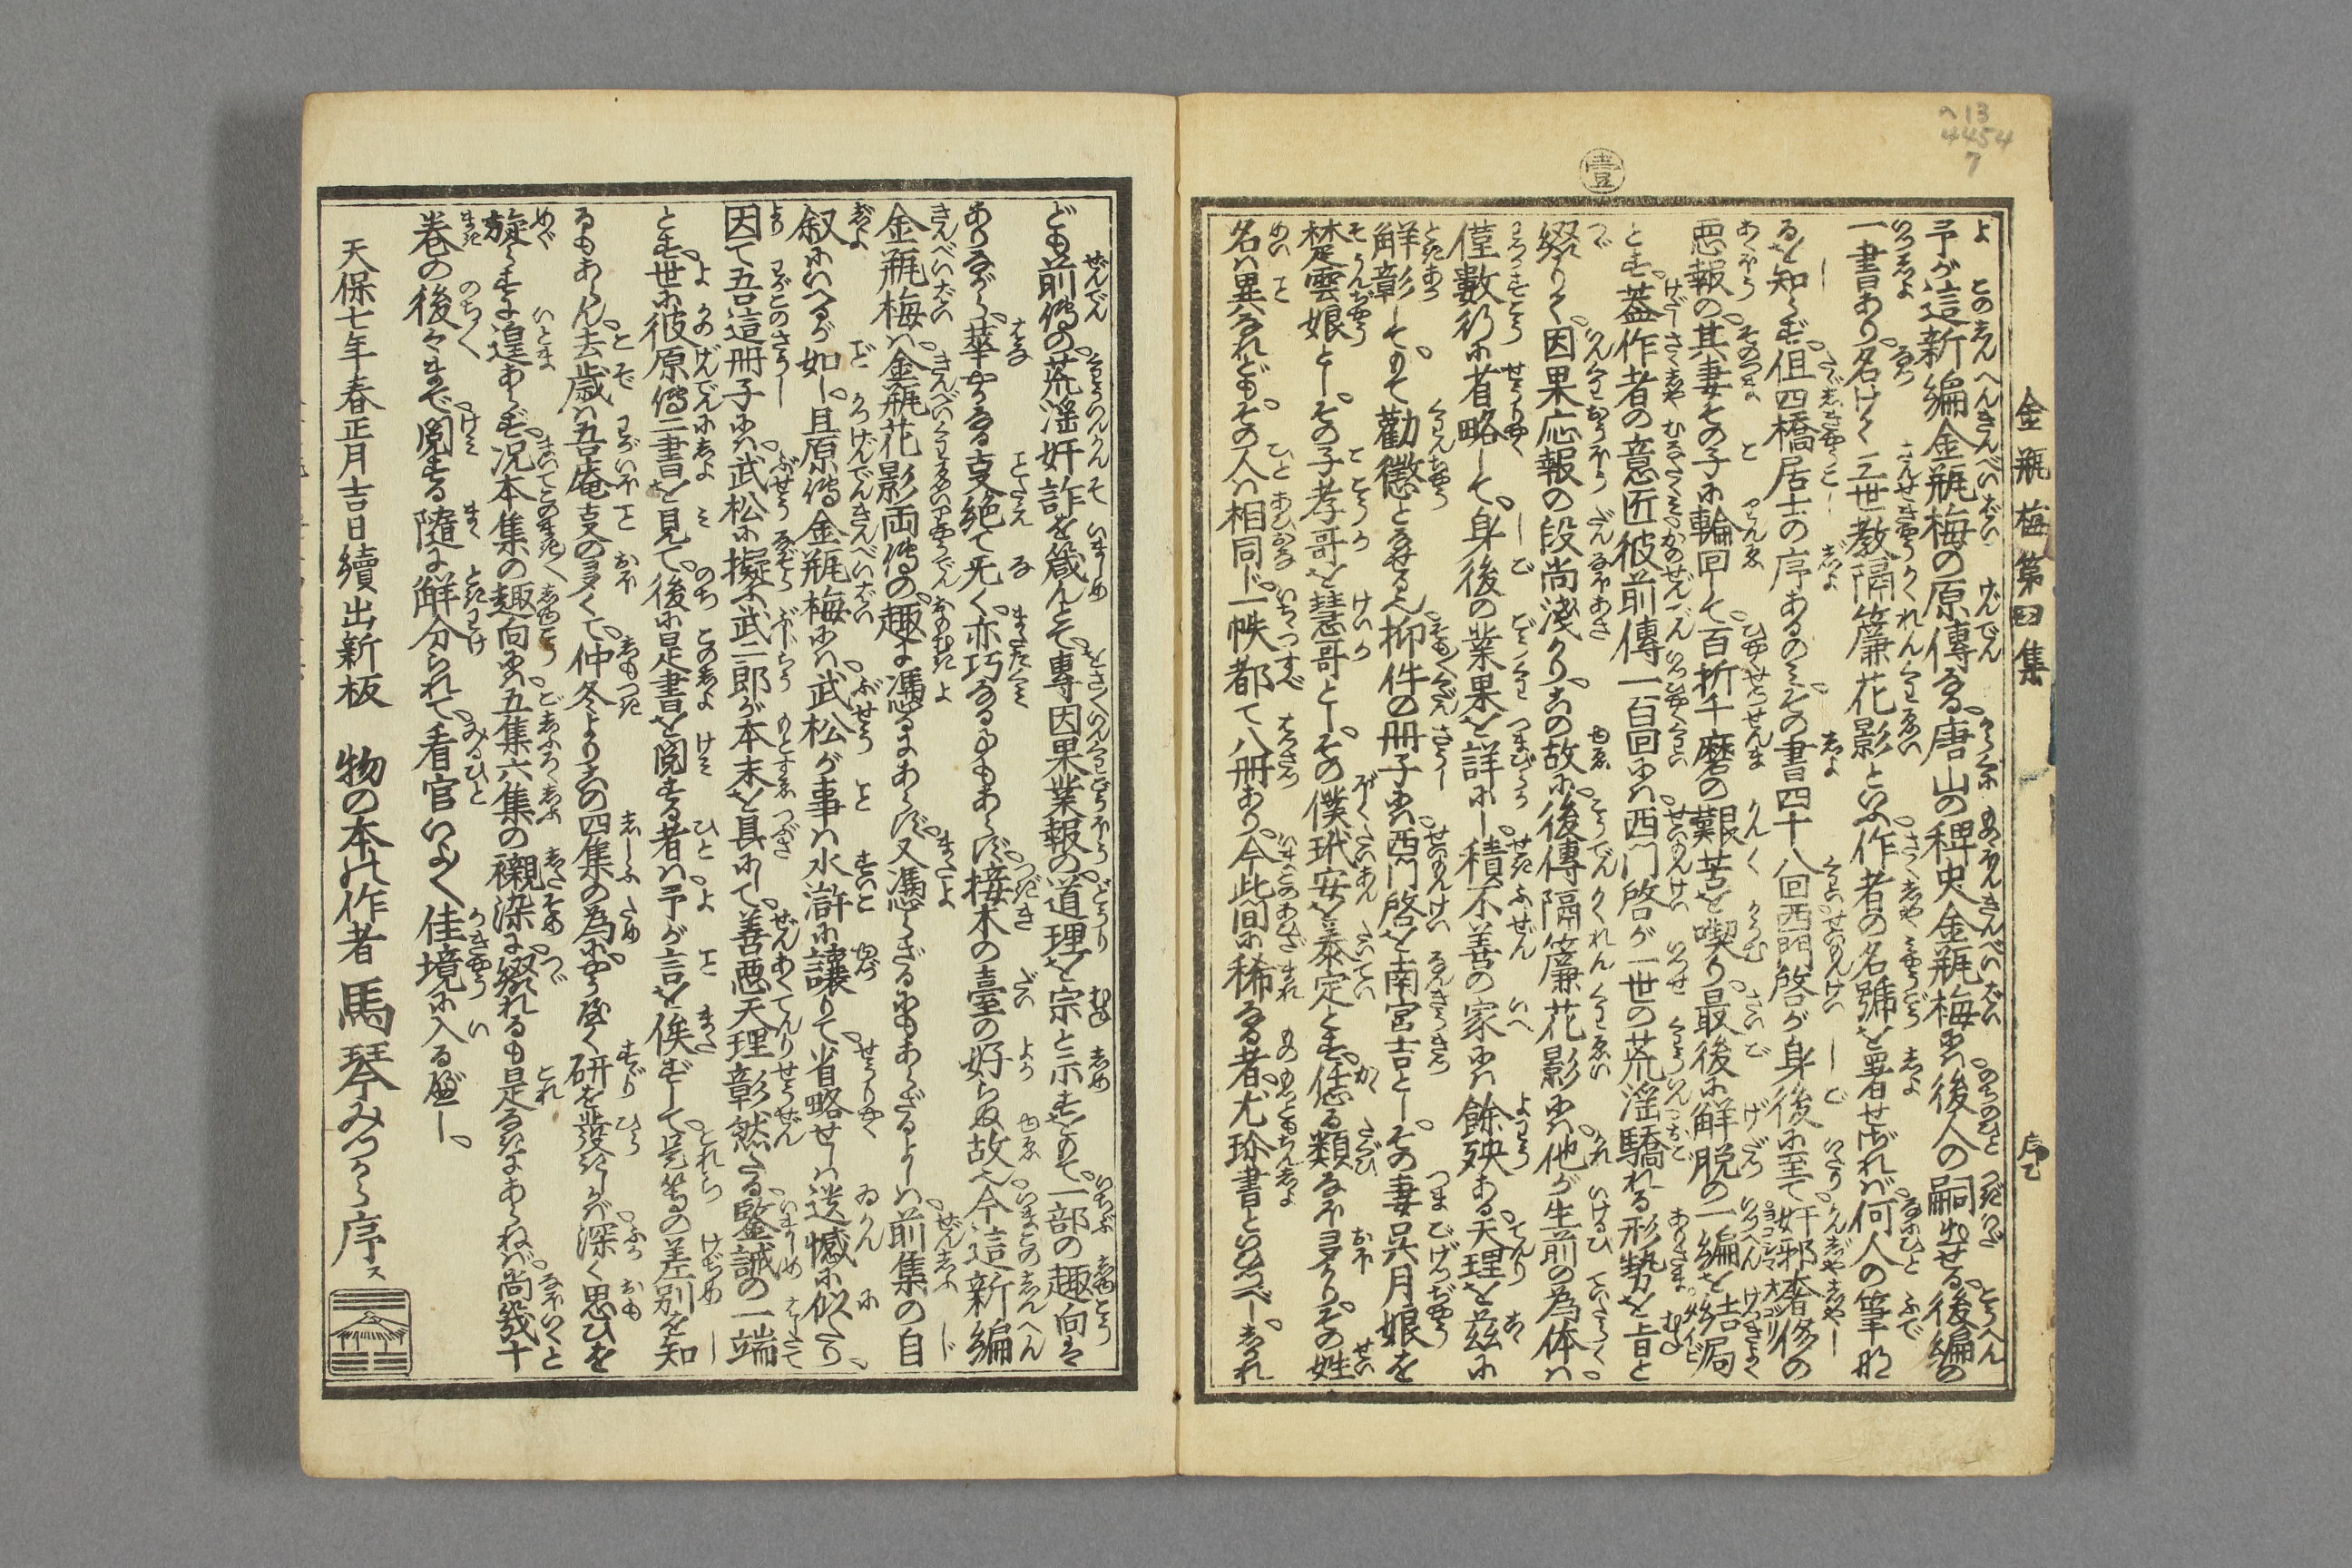 へ13
4454
7
壹
金瓶梅第四集
序乙
予が這新編金瓶梅の原傳なる。唐山の稗史金瓶梅には後人の嗣出せる。後編の
一書あり。名けて三世教隔簾花影といふ。作者の名號を署せざれば何人の筆な
るを知らず。但四橋居士の序あるのみ。その書四十八回西門啓が身後に至て。奸邪奢修の
悪報の。其妻その子に輪回して。百折千磨の艱苦を喫り。最後に解脱の一編を結局
とす。蓋作者の意匠彼前傳一百回には。西門啓が一世の荒淫驕れる形勢を旨と
綴りて。因果応報の段尚淺かり。この故に。後傳隔簾花影には。他が生前の為体は。
僅數行に省略して。身後の業果を詳にし。積不善の家には餘殃ある。天理を茲に
觧彰して。もて勸懲となせる也。抑件の册子には。西門啓を南宮吉とし。その妻呉月娘を
楚雲娘とし。その子孝哥を慧哥とし。その僕玳安を泰定とす。恁る類なほ多かり。その姓
名は異なれども。その人は相同じ。一帙都て八册あり。今此間に稀なる者。尤珍書といひつべし。しかれ
ども前傳の荒淫奸詐を箴んとて。專因果業報の。道理を宗と示すをもて。一部の趣向は
ありながら。華やかなる叓絶て旡く。亦巧なるゆもあらず。接木の臺の好らぬ故也。今這新編
金瓶梅は。金瓶花影両傳の。趣に憑るにあらず。又憑らざるにもあらざるよしは。前集の自
叙にいへるが如し。且原傳金瓶梅には。武松が事は水滸に讓りて。省略せしは遺憾に似たり。
因て吾這册子には。武松に擬ふ武二郎が本末を具にして。善悪天理彰然たる。鑒誡の一端
とす。世に彼原傳二書を見て。後に是書を閲する者は。予が言を俟ずして。是等の差別を知
るもあらん。去歳は吾庵叓の多くて。仲冬よりこの四集の為に。やうやく研を發きしが。深く思ひを
旋らすに遑あらず。况本集の趣向は。五集六集の襯染に綴れるも是なきにあらねば。尚幾十
巻の後々まで。閲する隨に觧分られて。看官いよゝ佳境に入るべし。
天保七年春正月吉日續出新板　物の本の作者　馬琴みづから序ス